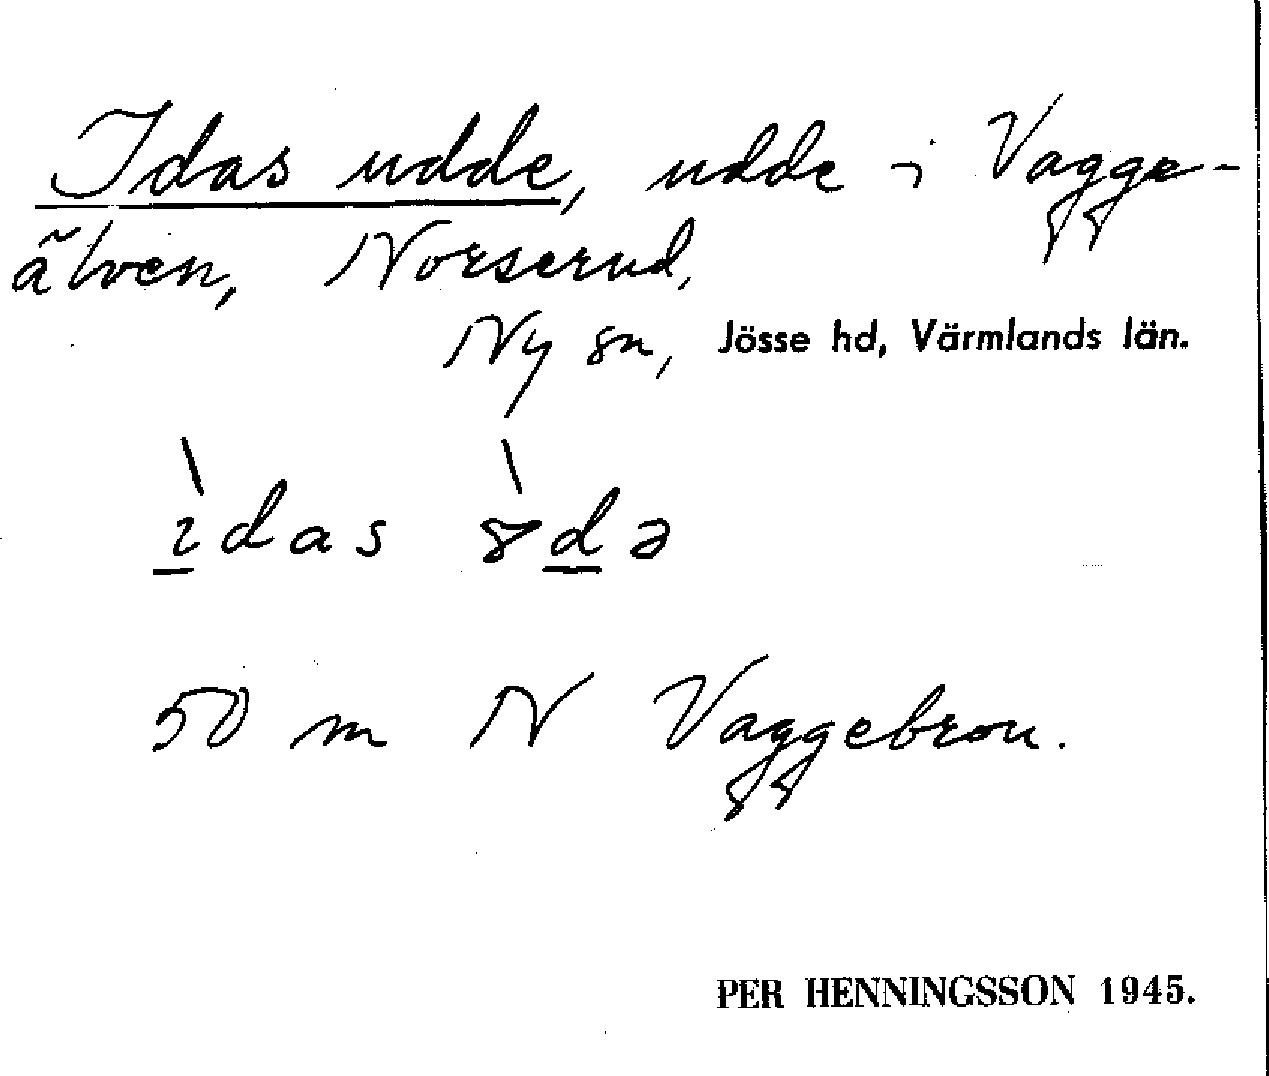 Idas udde, udde i Vagge-
älven, Norserud,
Ny sn, Jösse hd, Värmlands län.
ìdas 8̀də
50 m N Vaggebron.
PER HENNINGSSON 1945.